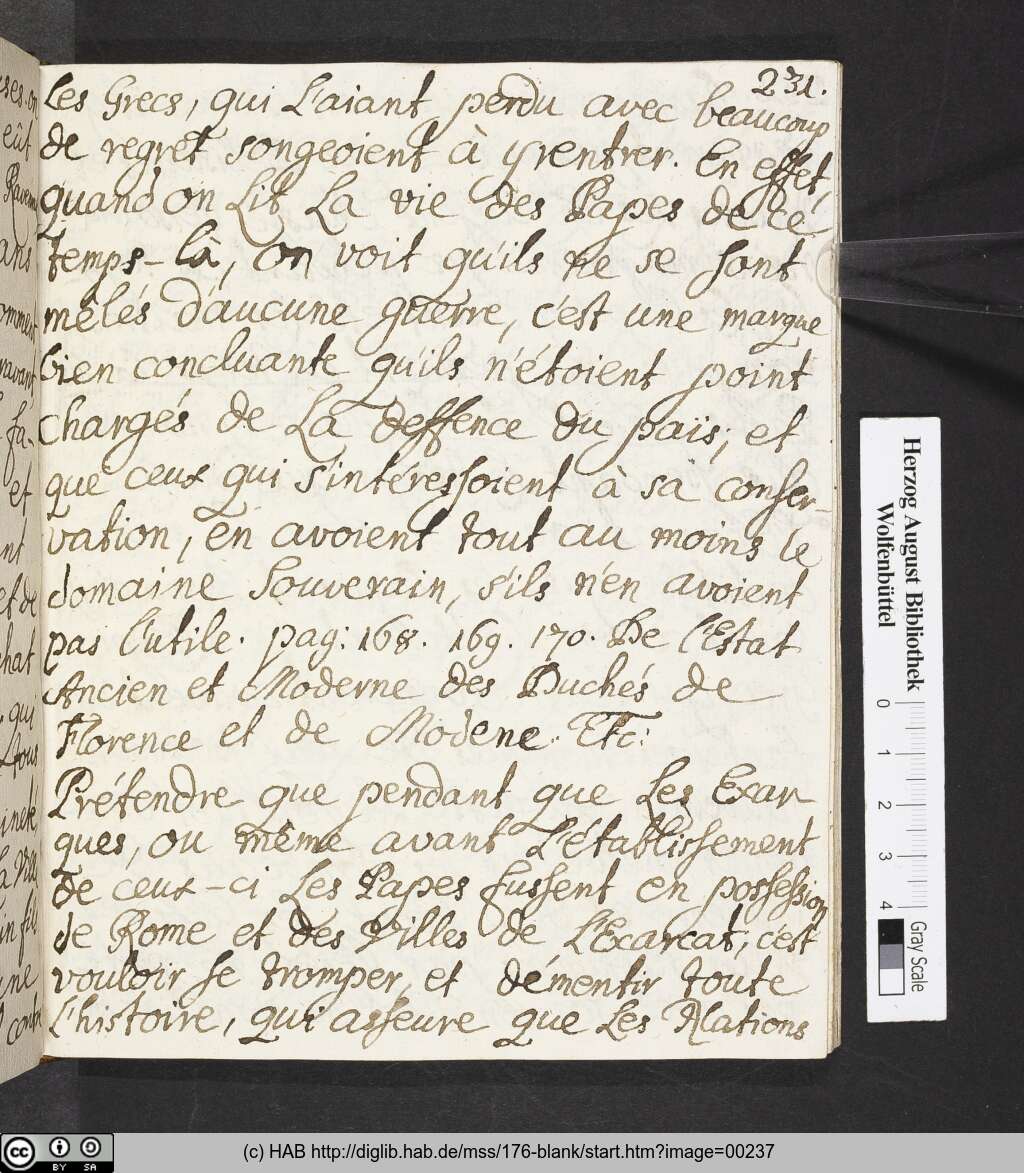 231.
Les Grecs, qui L'aiant perdu avec beaucoup
de regret songeoient à y rentrer. En effet,
quand on Lit La vie des Papes de ce
temps-là, on voit qu'ils ne se sont
mêlés d'aucune guerre, c'est une marque
bien concluante qu'ils n'étoient point
chargés de La deffence du païs; et
que ceux qui s'intéressoient à sa conser-
vation, en avoient tout au moins le
domaine Souverain, s'ils n'en avoient
pas l'utile. pag: 168. 169. 170. De l'Estat
Ancien et Moderne des Duchés de
Florence et de Modene. Etc:
Prétendre que pendant que Les Exar-
ques, ou même avant L'établissement
de ceux-ci Les Papes fussent en possession
de Rome et des Villes de L'Exarcat, c'est
vouloir se tromper, et démentir toute
l'histoire, qui asseure que Les Nations
ses. on
eût
ans
fa-
et
nt
et de
chat
, qui
L tous
une
Herzog August Bibliothek
Wolfenbüttel
0 1 2 3 4
Gray Scale
cc BY SA
(c) HAB http://diglib.hab.de/mss/176-blank/start.htm?image=00237